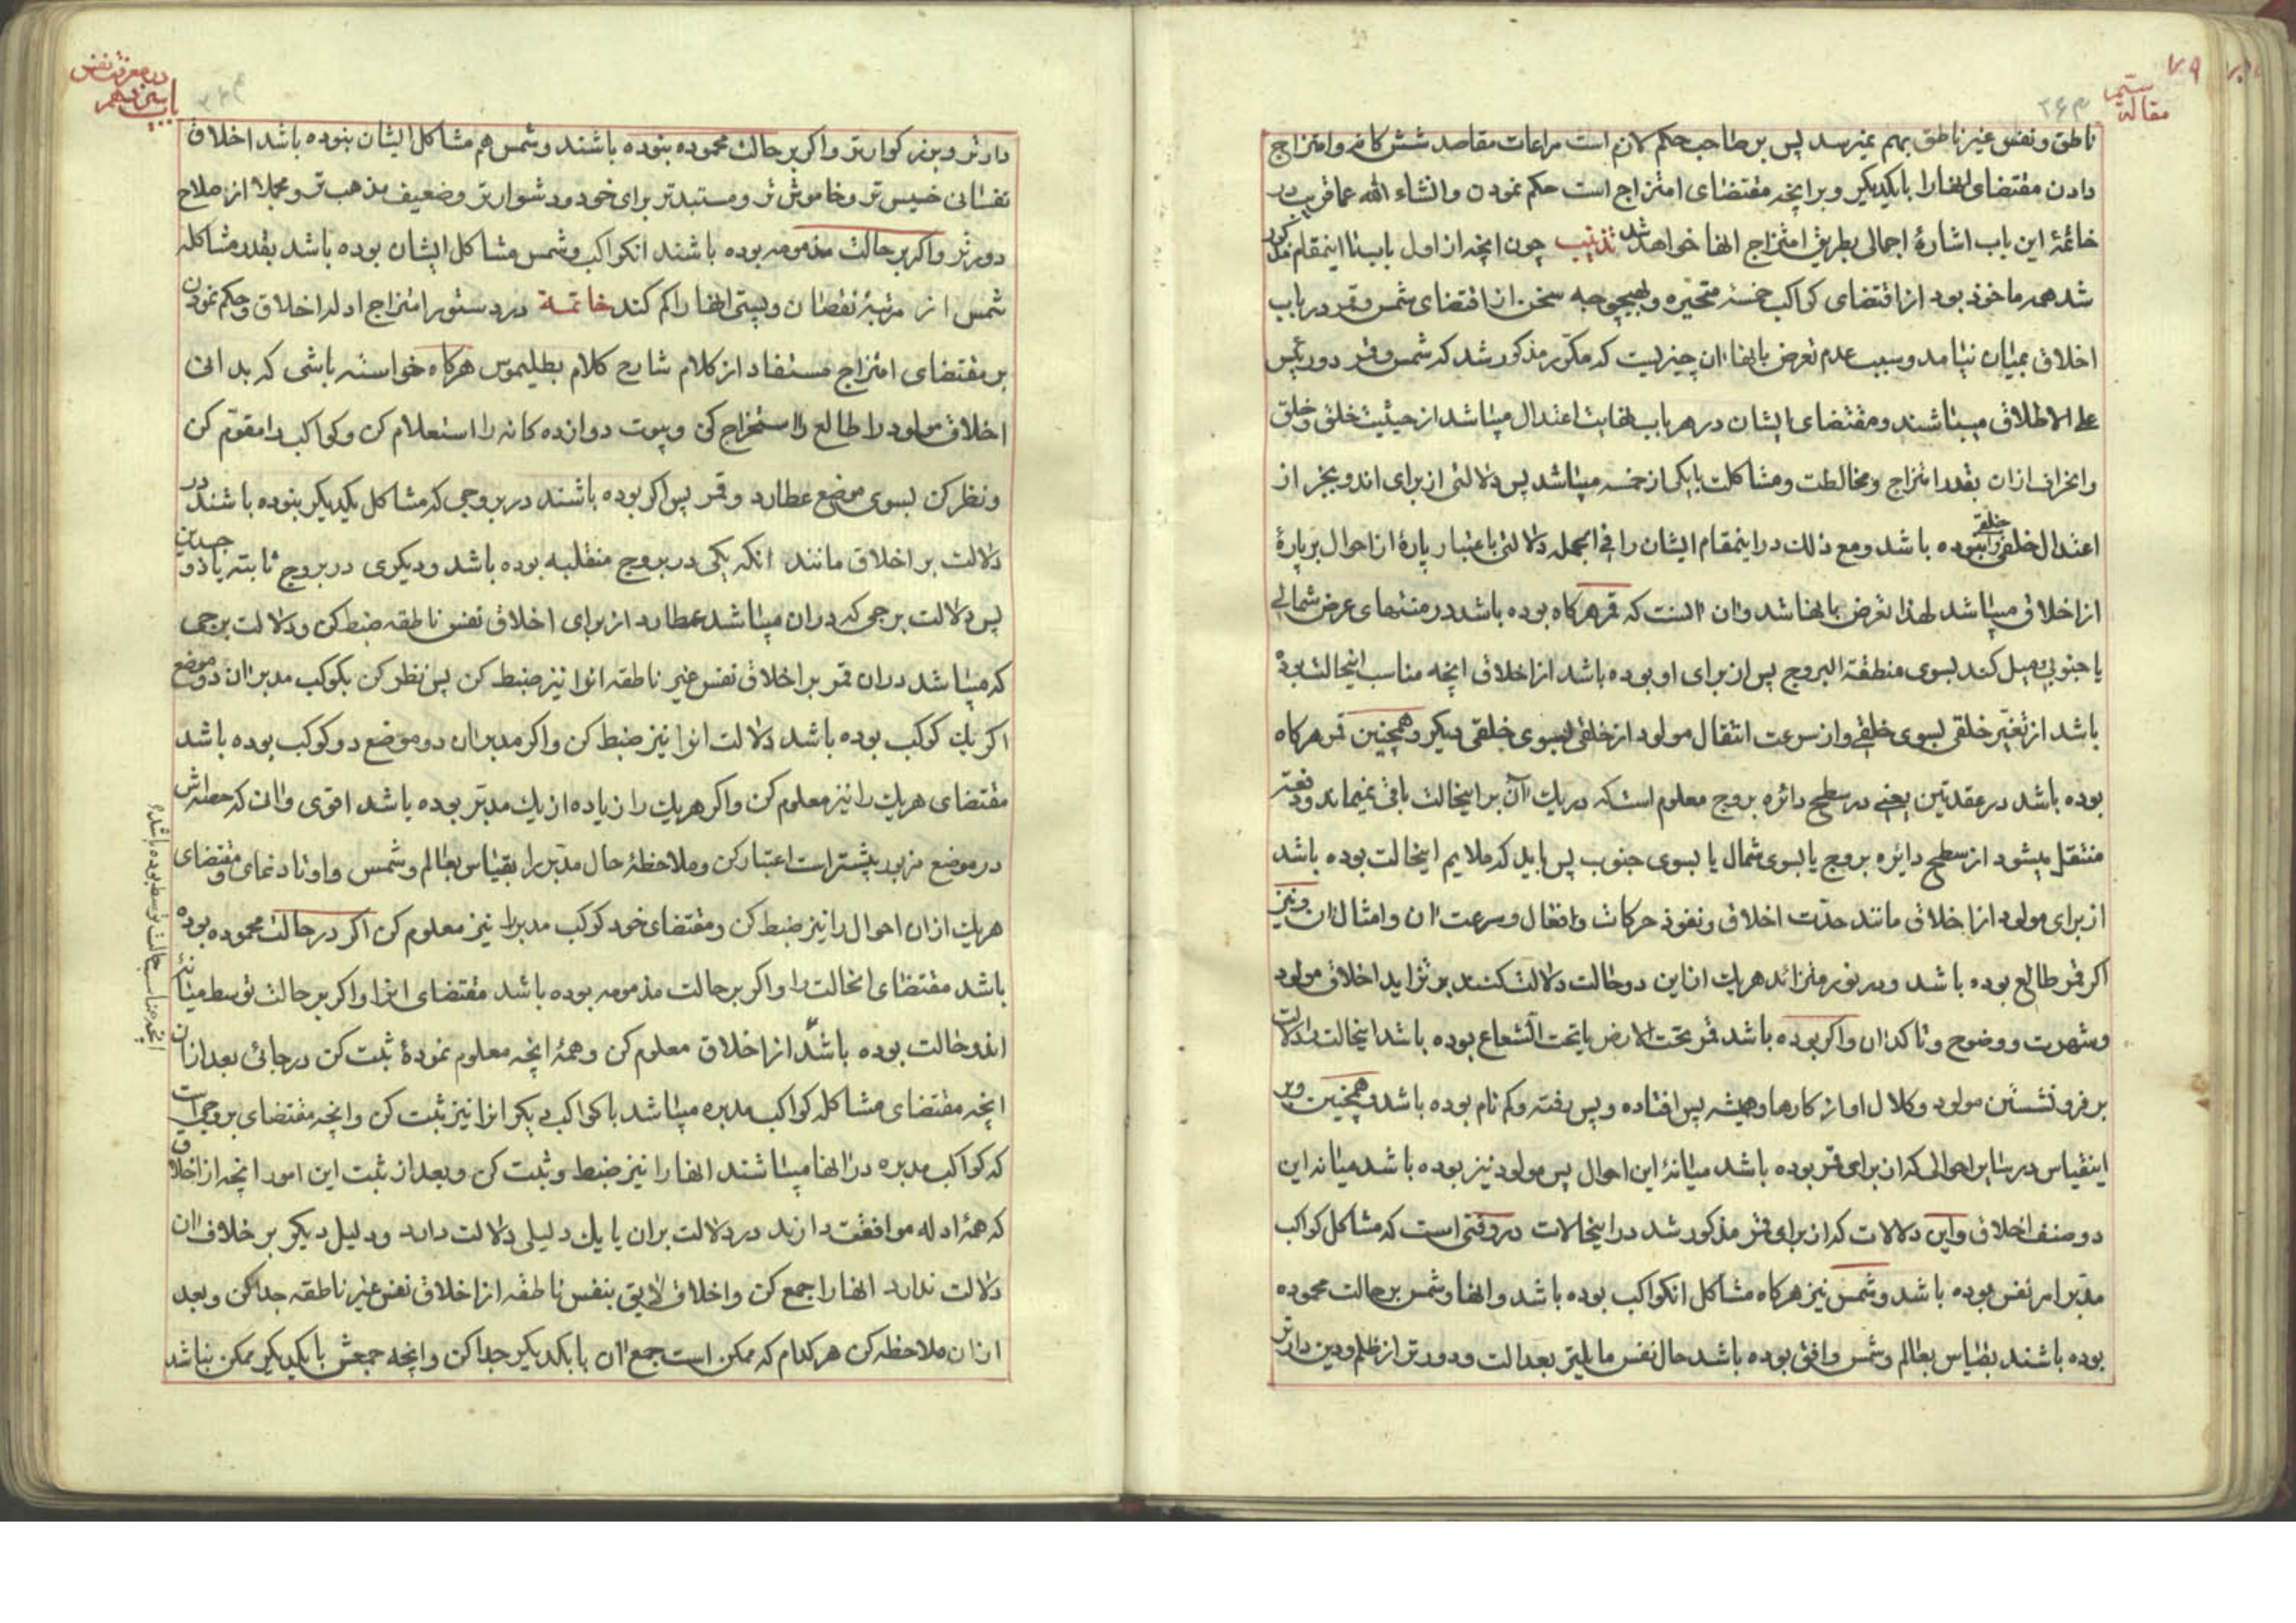 مقالهٔ سیم
۲۶۳
ناطق و نفس غیر ناطق بهم میرسد پس بر صاحب حکم لازم است مراعات مقاصد شش کانه و امتزاج
دادن مقتضای انها را با یکدیکر و برانچه مقتضای امتزاج است حکم نمودن و انشاء الله عما قریب در
خاتمهٔ این باب اشارهٔ اجمالی بطریق امتزاج انها خواهد شد تذنیب چون انچه از اول باب تا اینمقام مذکور
شد همه ماخوذ بود از اقتضای کواکب خمسهٔ متحیره و بهیچوجه سخن از اقتضای شمس و قمر در باب
اخلاق بمیان نیامد و سبب عدم تعرض بانها ان چیزیست که مکرر مذکور شد که شمس و قمر دو رئیس
علی الاطلاق میباشند و مقتضای ایشان در هر باب بغایت اعتدال میباشد از حیثیت خلقی و خلق
و انحراف از ان بقدر امتزاج و مخالطت و مشاکلت با یکی از خمسه میباشد پس دلالتی از برای اندو بجز از
اعتدال خلقی و خلقی نبوده باشد و مع ذلک در اینمقام ایشان را فی الجمله دلالتی باعتبار پارهٔ از احوال بر پارهٔ
از اخلاق میباشد لهذا تعرض بانها شد و ان انست که قمر هرکاه بوده باشد در منتهای عرض شمالی
یا جنوبی و میل کند بسوی منطقة البروج پس از برای او بوده باشد از اخلاق انچه مناسب اینحالت بوده
باشد از تغیر خلقی بسوی خلقی و از سرعت انتقال مولود از خلقی بسوی خلقی دیکر و همچنین قمر هرکاه
بوده باشد در عقدتین یعنی در سطح دائره بروج معلوم است که در یک آن بر اینحالت باقی نمیماند و دفعة
منتقل میشود از سطح دایره بروج یا بسوی شمال یا بسوی جنوب پس باید که ملایم اینحالت بوده باشد
از برای مولود از اخلاق مانند حدّت اخلاق و نفوذ حرکات و افعال و سرعت ان و امثال ان و نیز
اکر قمر طالع بوده باشد و در نور متزائد هریک از این دو حالت دلالت کنند بر تزاید اخلاق مولود
و شهرت و وضوح و تاکد ان و اکر بوده باشد قمر تحت الارض یا تحت الشعاع بوده باشد اینحالت دلالت
بر فرو نشستن مولود و کلال او از کارها و همیشه پس افتاده و پس رفته و کم نام بوده باشد و همچنین و بر
اینقیاس در سایر احوالی که از برای قمر بوده باشد میانهٔ این احوال پس مولود نیز بوده باشد میانه این
دو صنف اخلاق و این دلالات که از برای قمر مذکور شد در اینحالات در وقتی است که مشاکل کواکب
مدبّر امر نفس بوده باشد و شمس نیز هرکاه مشاکل انکواکب بوده باشد و انها و شمس بر حالت محموده
بوده باشند بقیاس بعالم و شمس وافق بوده باشد حال نفس مایلتر بعدالت و دورتر از ظلم و دین دارتر
در معرفت نفس
باب سیزدهم
دارتر و بزرکوارتر و اکر بر حالت محموده بنوده باشند و شمس هم مشاکل ایشان بنوده باشد اخلاق
نفسانی خسیس تر و خاموش تر و مستبدتر برای خود و دشوارتر و ضعیف مذهب تر و مجملا از صلاح
دورتر و اکر بر حالت مذمومه بوده باشند انکواکب و شمس مشاکل ایشان بوده باشد بقدر مشاکله
شمس از مرتبهٔ نقصان و پستی انها را کم کند خاتمة در دستور امتزاج ادله اخلاق و حکم نمودن
بر مقتضای امتزاج مستفاد از کلام شارح کلام بطلیموس هرکاه خواسته باشی که بدانی
اخلاق مولود را طالع را استخراج کن و بیوت دوازده کانه را استعلام کن و کواکب را مقوّم کن
و نظر کن بسوی موضع عطارد و قمر پس اکر بوده باشند در بروجی که مشاکل یکدیکر بنوده باشند در
دلالت بر اخلاق مانند انکه یکی در بروج منقلبه بوده باشد و دیکری در بروج ثابته یا ذو جسدین
پس دلالت برجی که در ان میباشد عطارد از برای اخلاق نفس ناطقه ضبط کن و دلالت برجی
که میباشد در ان قمر بر اخلاق نفس غیر ناطقه انرا نیز ضبط کن پس نظر کن بکوکب مدبر ان دو موضع
اکر یک کوکب بوده باشد دلالت انرا نیز ضبط کن و اکر مدبر ان دو موضع دو کوکب بوده باشد
مقتضای هریک را نیز معلوم کن و اکر هریک را زیاده از یک مدبّر بوده باشد اقوی و ان که حظهاش
در موضع مزبور بیشتر است اعتبار کن و ملاحظهٔ حال مدبّر را بقیاس بعالم و شمس و اوتاد نمای و مقتضای
هریک از ان احوال را نیز ضبط کن و مقتضای خود کوکب مدبر را نیز معلوم کن اکر در حالت محموده بوده
باشد مقتضای انحالت را و اکر بر حالت مذمومه بوده باشد مقتضای انرا و اکر بر حالت توسط میانهٔ
اندو حالت بوده باشد از اخلاق معلوم کن و همهٔ انچه معلوم نمودهٔ ثبت کن در جائی بعد از ان
انچه مقتضای مشاکله کواکب مدبره میباشد با کواکب دیکر انرا نیز ثبت کن و انچه مقتضای بروجی است
که کواکب مدبره در انها میباشند انها را نیز ضبط و ثبت کن و بعد از ثبت این امور انچه از اخلاق
که همهٔ ادله موافقت دارند در دلالت بران یا یک دلیلی دلالت دارد و دلیل دیکر بر خلاف ان
دلالت ندارد انها را جمع کن و اخلاق لایق بنفس ناطقه از اخلاق نفس غیر ناطقه جدا کن و بعد
از ان ملاحظه کن هر کدام که ممکن است جمع ان با یکدیکر جدا کن و انچه جمعش با یکدیکر ممکن نباشد
انچه مناسب حالت توسط بوده باشد